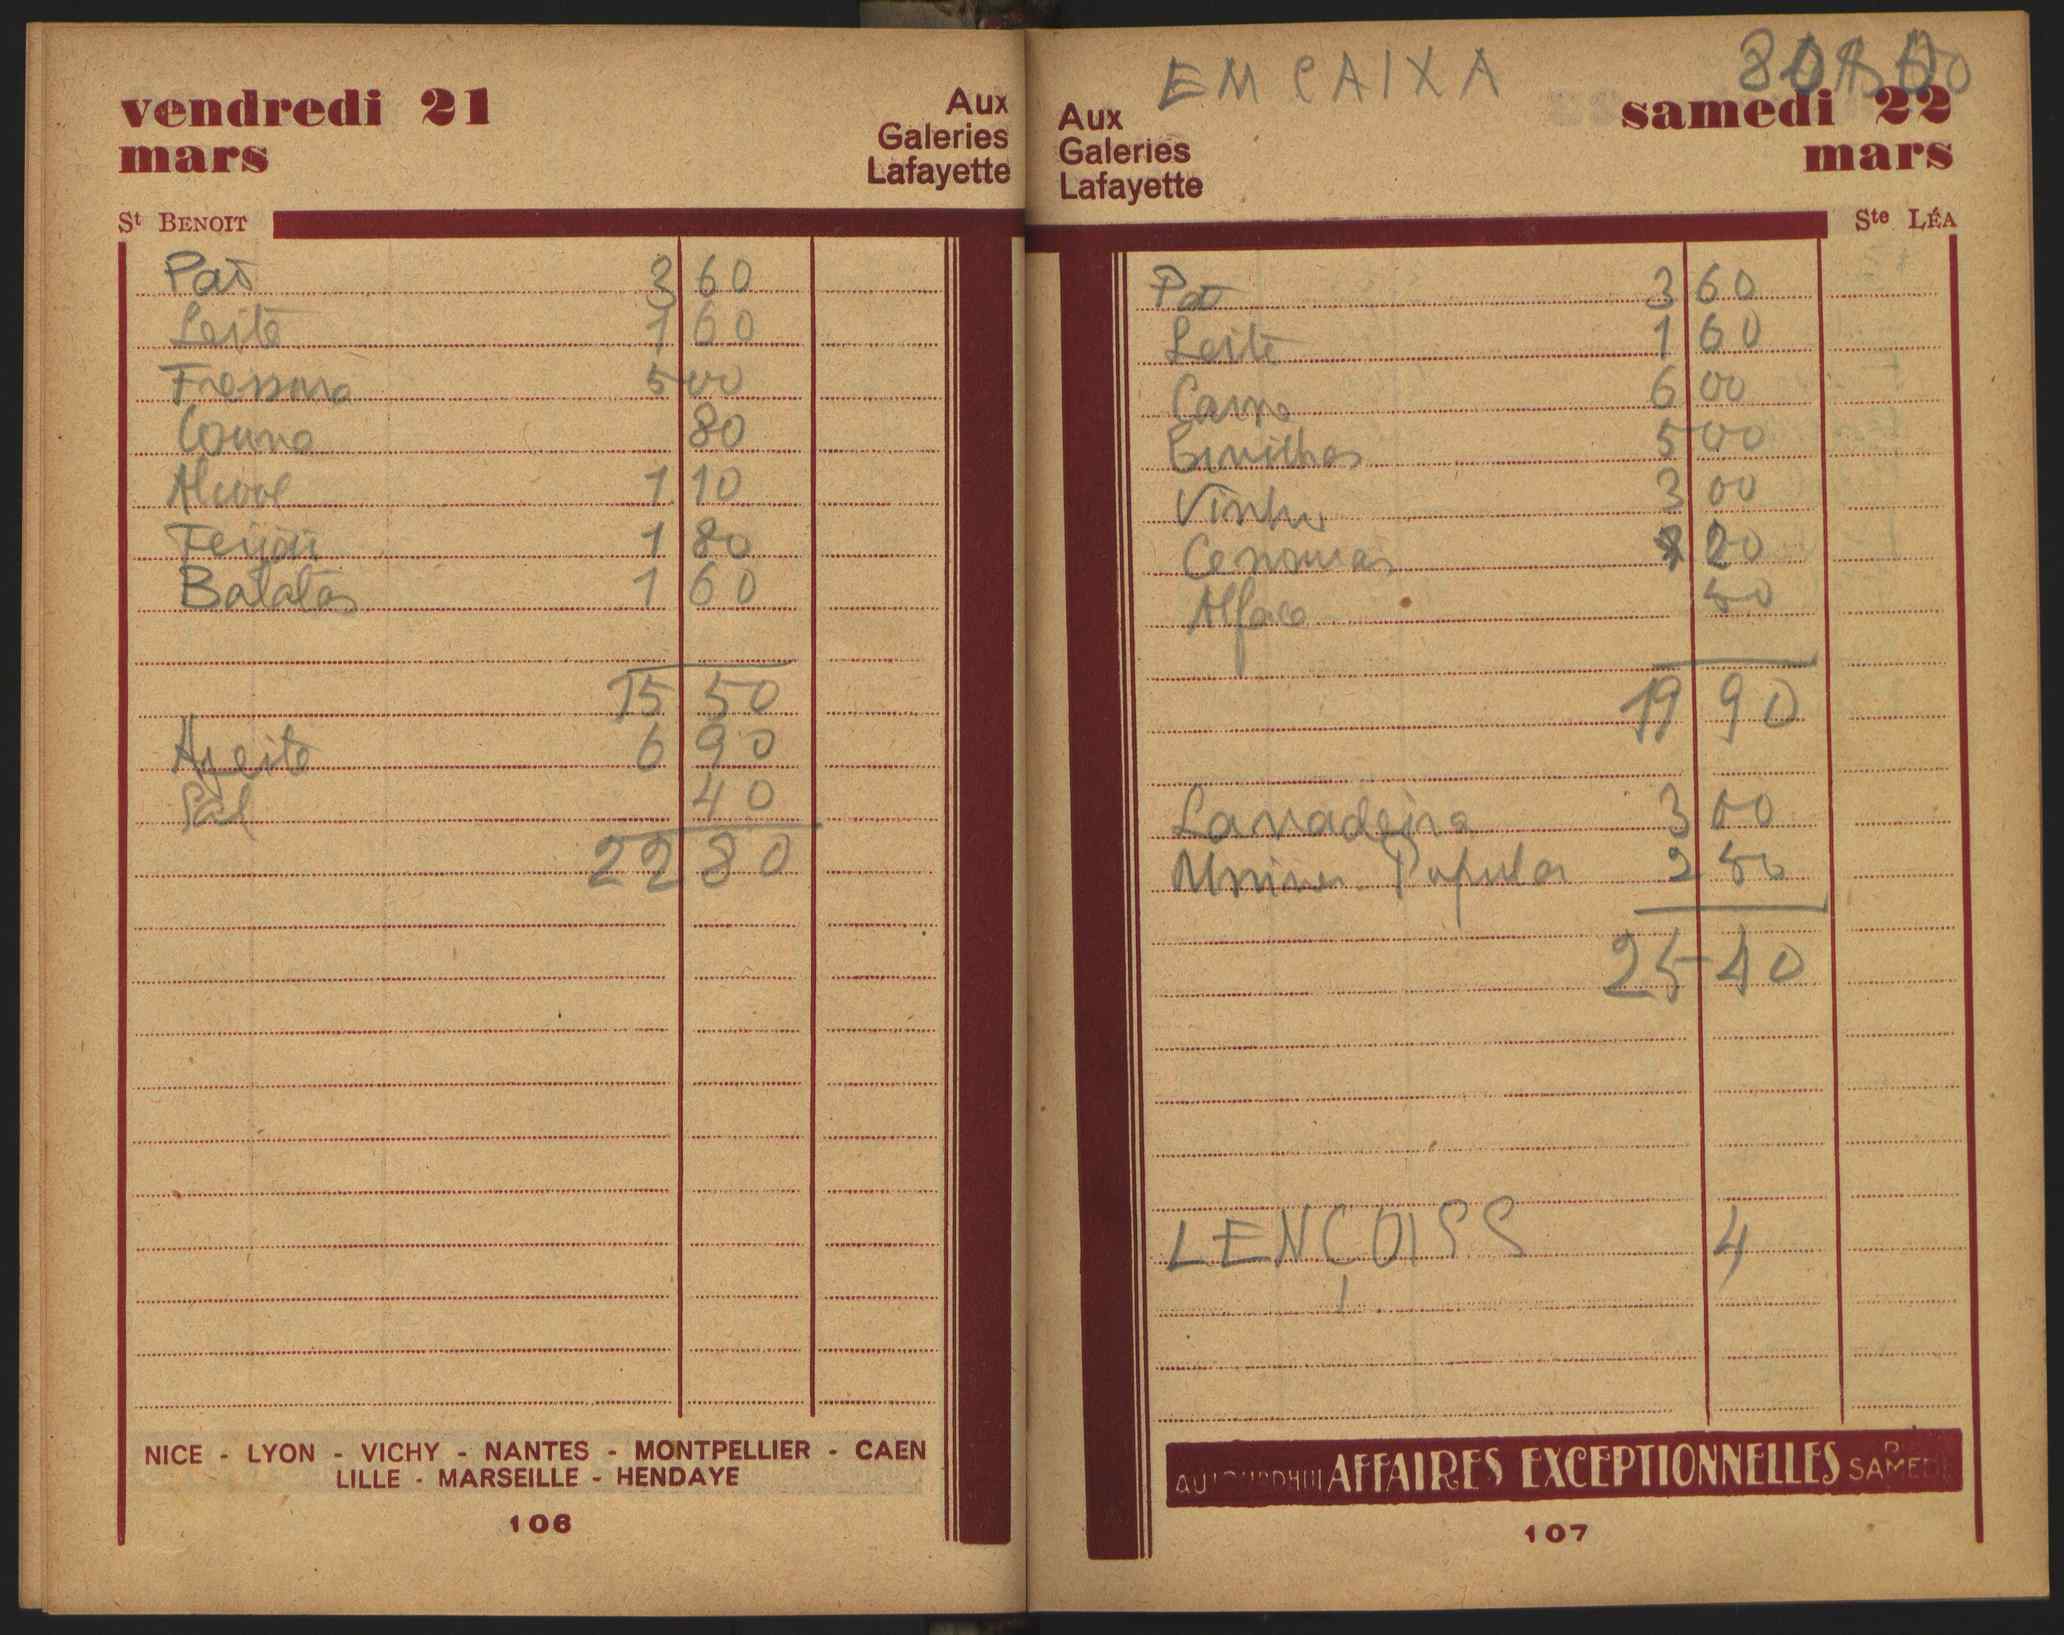 vendredi 21
mars
Aux
Galeries
Lafayette
St BENOIT
Pão 3 60
Leite 1 60
Fressura 5 00
Couve 80
Alcool 1 10
Feijão 1 80
Batatas 1 60
15 50
Azeite 6 90
Sal 40
22 80
NICE - LYON - VICHY - NANTES - MONTPELLIER - CAEN
LILLE - MARSEILLE - HENDAYE
106
EM CAIXA
Aux
Galeries
Lafayette
samedi 22
mars
Ste LÉA
Pão 3 60
Leite 1 60
Carne 6 00
Ervilhas 5 00
Vinho 3 00
Cenouras 20
Alface 50
19 90
Lavadeira 3 00
Univer. Popular 2 50
25 40
LENÇOISS 4
AUJOURD'HUI AFFAIRES EXCEPTIONNELLES SAMEDI
107